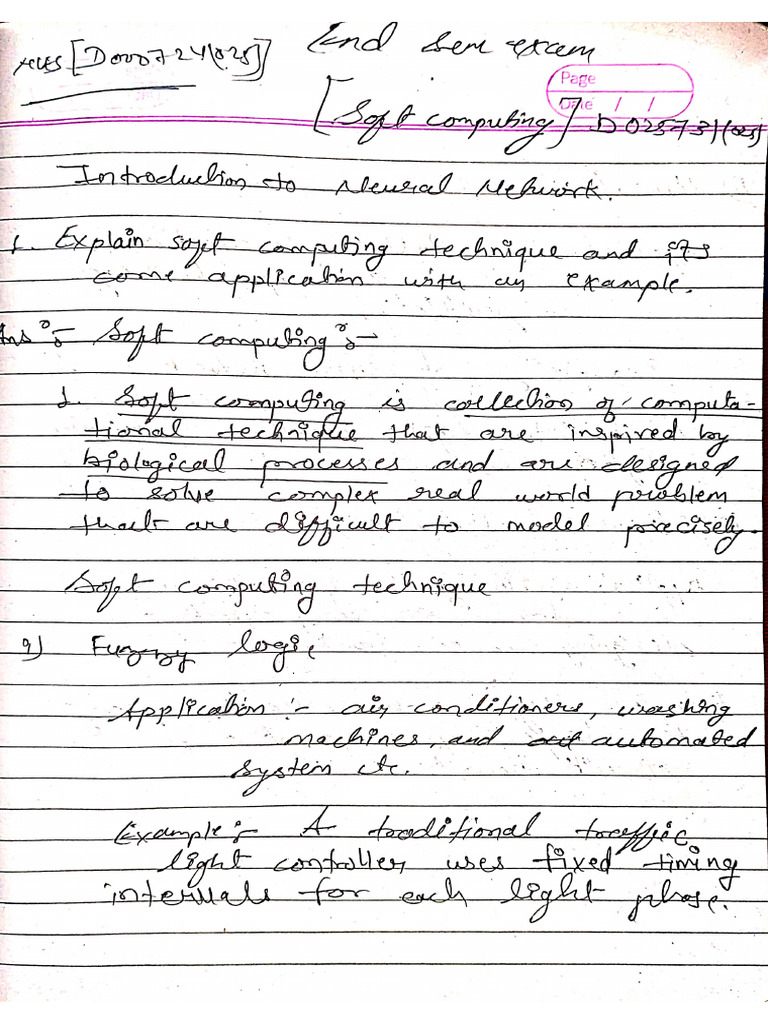 [D000724(025)] End sem exam
Page
Date / /
[Soft computing] D025731(025)
Introduction to Neural Network.
1. Explain soft computing technique and its
come application with an example.
Ans :- Soft computing :-
1. Soft computing is collection of computa-
tional technique that are inspired by
biological processes and are designed
to solve complex real world problem
that are difficult to model precisely.
Soft computing technique
a) Fuzzy logic
Application :- air conditioners, washing
machines, and automated
system etc.
Example :- A traditional traffic
light controller uses fixed timing
intervals for each light phase.